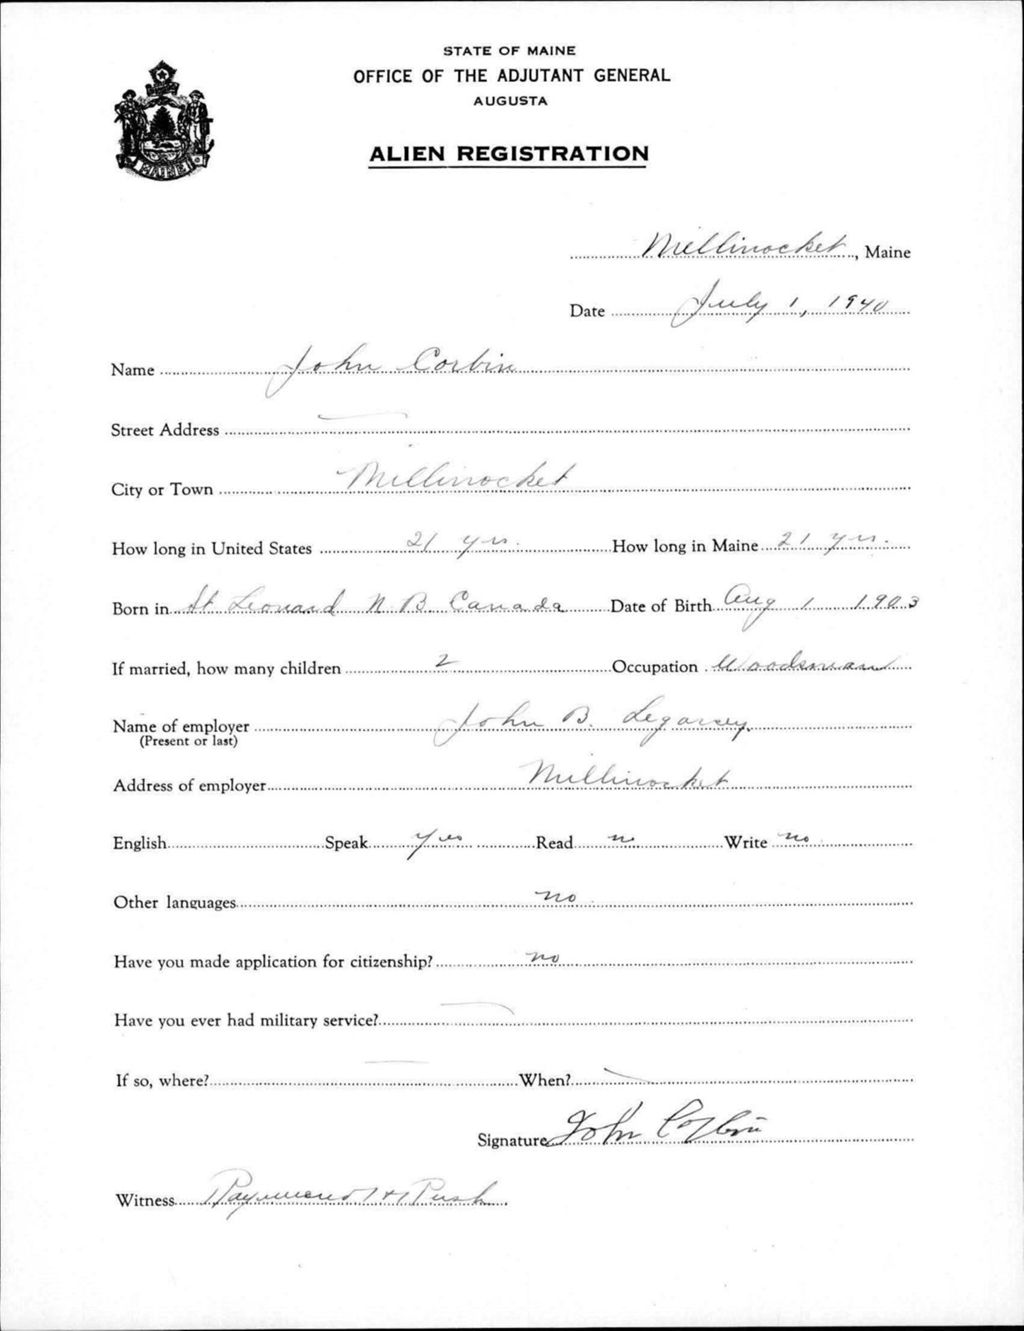 STATE OF MAINE
OFFICE OF THE ADJUTANT GENERAL
AUGUSTA
ALIEN REGISTRATION
MAINE
Millinocket, Maine
Date July 1, 1940
Name John Corbin
Street Address
City or Town Millinocket
How long in United States 21 yrs. How long in Maine 21 yrs.
Born in St Leonard N B Canada Date of Birth Aug 1 1903
If married, how many children 2 Occupation Woodsman
Name of employer John B. Legassey
(Present or last)
Address of employer Millinocket
English Speak yes Read no Write no
Other languages no
Have you made application for citizenship? no
Have you ever had military service?
If so, where? When?
Signature John Corbin
Witness Raymond H Rush